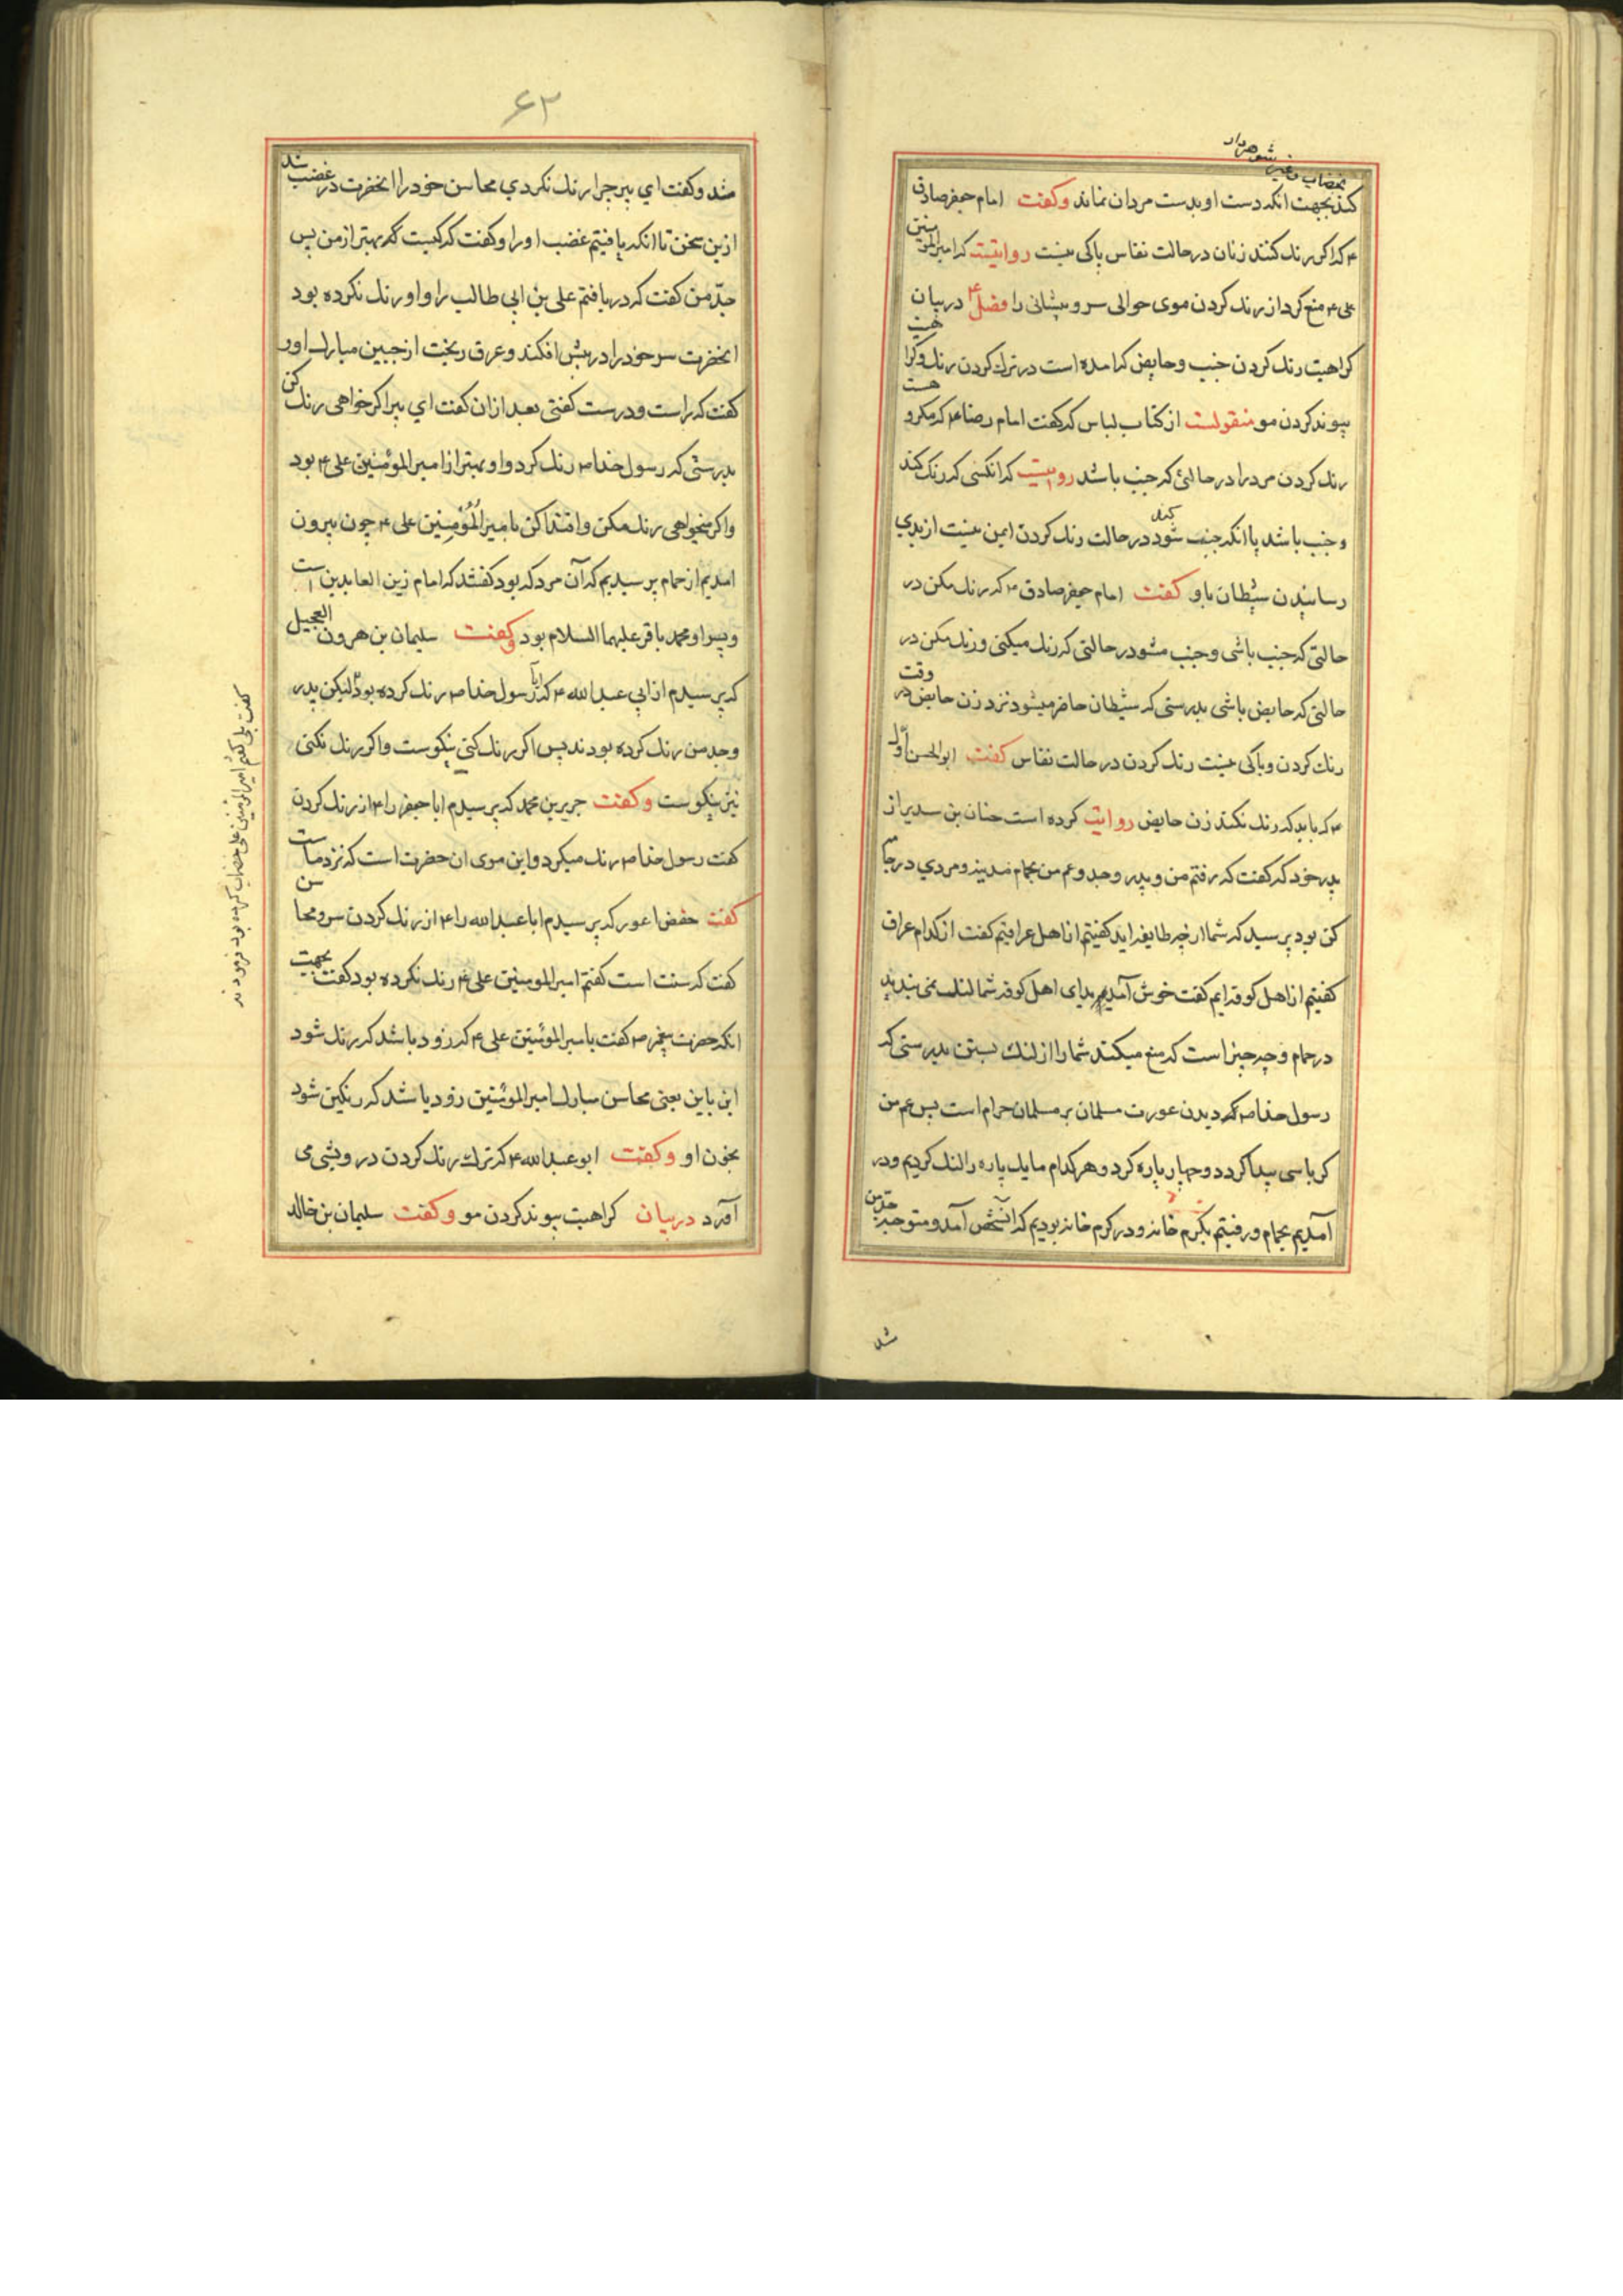 بخضاب وغیر شوهردار
کند بجهت انکه دست او بدست مردان نماند وکفت امام جعفر صادق
۴ که اکر رنك کنند زنان در حالت نفاس باکی نیست روایتست که امیرالمؤمنین
علی ۴ منع کرد از رنك کردن موی حوالی سر و پیشانی را فصل ۴ در بیان
کراهیت رنك کردن جنب و حایض که امده است در ترك کردن رنك وکراهیت
پیوند کردن مو منقولست از کتاب لباس که کفت امام رضا ۴ که مکروهست
رنك کردن مرد را در حالتی که جنب باشد روایتست که انکسی که رنك کند
وجنب باشد یا انکه جنب شود در حالت رنك کردن ایمن نیست از بدی
کند
رسانیدن شیطان باو کفت امام جعفر صادق ۴ که رنك مکن در
حالتی که جنب باشی وجنب مشو در حالتی که رنك میکنی ورنك مکن در
حالتی که حایض باشی بدرستی که شیطان حاضر میشود نزد زن حایض در وقت
رنك کردن وباکی نیست رنك کردن در حالت نفاس کفت ابوالحسن اول
۴ که باید که رنك نکند زن حایض روایت کرده است حنان بن سدیر از
پدر خود که کفت که رفتم من و پدر وجد وعم من بحمام مدینه ومردی در جامه
کن بود پرسید که شما از چه طایفه اید کفتیم از اهل عراقیم کفت از کدام عراق
کفتیم از اهل کوفه ایم کفت خوش آمدید ای اهل کوفه شما لنك نمی بندید
در حمام وچه چیز است که منع میکند شما را از لنك بستن بدرستی که
رسول خدا ص که دیدن عورت مسلمان بر مسلمان حرام است پس عم من
کرباسی پیدا کرد و چهار پاره کرد وهر کدام ما یك پاره را لنك کردیم ودر
آمدیم بحمام ورفتیم بکرم خانه ودر کرم خانه بودیم که آنشخص آمد ومتوجه جد من
شد
۶۳
شد وکفت ای پیر چرا رنك نکردی محاسن خود را انحضرت در غضب شد
ازین سخن تا انکه یافتیم غضب او را وکفت که کیست که بهتر از من پس
جد من کفت که دریافتم علی بن ابی طالب را واو رنك نکرده بود
انحضرت سر خود را در پیش افکند وعرق ریخت از جبین مبارك اور
کفت که راست ودرست کفتی بعد از ان کفت ای پیر اکر خواهی رنك کن
بدرستی که رسول خدا ص رنك کرد واو بهتر از امیرالمؤمنین علی ۴ بود
واکر میخواهی رنك مکن واقتدا کن بامیرالمؤمنین علی ۴ چون بیرون
امدیم از حمام پرسیدیم که آن مرد که بود کفتند که امام زین العابدین است
وپسر او محمد باقر علیهما السلام بود وکفت سلیمان بن هرون العجیل
که پرسیدم از ابی عبدالله ۴ که آیا رسول خدا ص رنك کرده بود لیکن پدر
وجد من رنك کرده بودند پس اکر رنك کنی نیکوست واکر رنك نکنی
نیز نیکوست وکفت جریر بن محمد که پرسیدم ابا جعفر را ۴ از رنك کردن
کفت رسول خدا ص رنك میکرد واین موی ان حضرت است که نزد ماست
کفت حفص اعور که پرسیدم ابا عبدالله را ۴ از رنك کردن سر ومحاسن
کفت که سنت است کفتم امیرالمومنین علی ۴ رنك نکرده بود کفت بجهت
انکه حضرت پیغمبر ص کفت با امیرالمؤمنین علی ۴ که زود باشد که رنك شود
این باین یعنی محاسن مبارك امیرالمؤمنین زود باشد که رنکین شود
بخون او وکفت ابو عبدالله ۴ که ترك رنك کردن درویشی می
آورد در بیان کراهیت پیوند کردن مو وکفت سلیمان بن خالد
کفت بلی کفتم امیرالمؤمنین علی خضاب کرده بود فرمودند